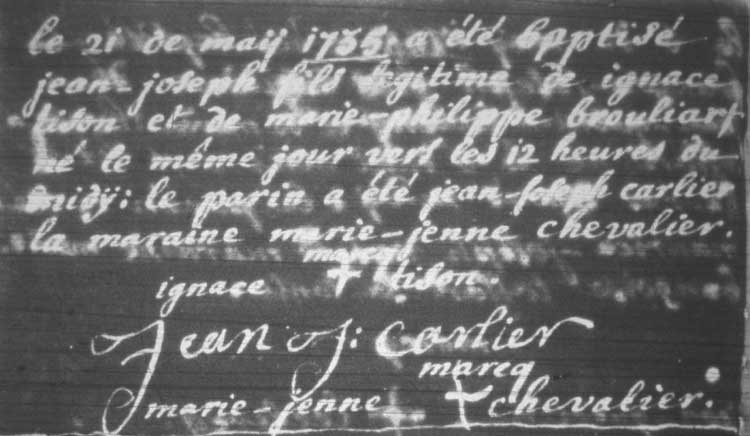 le 21 de maÿ 1735 a été baptisé
jean-joseph fils legitime de ignace
tison et de marie-philippe brouliart
né le même jour vers les 12 heures du
midÿ; le parin a été jean-joseph carlier
la maraine marie-jenne chevalier.
marcq
ignace + tison.
Jean J: carlier
marcq
marie-jenne + chevalier.